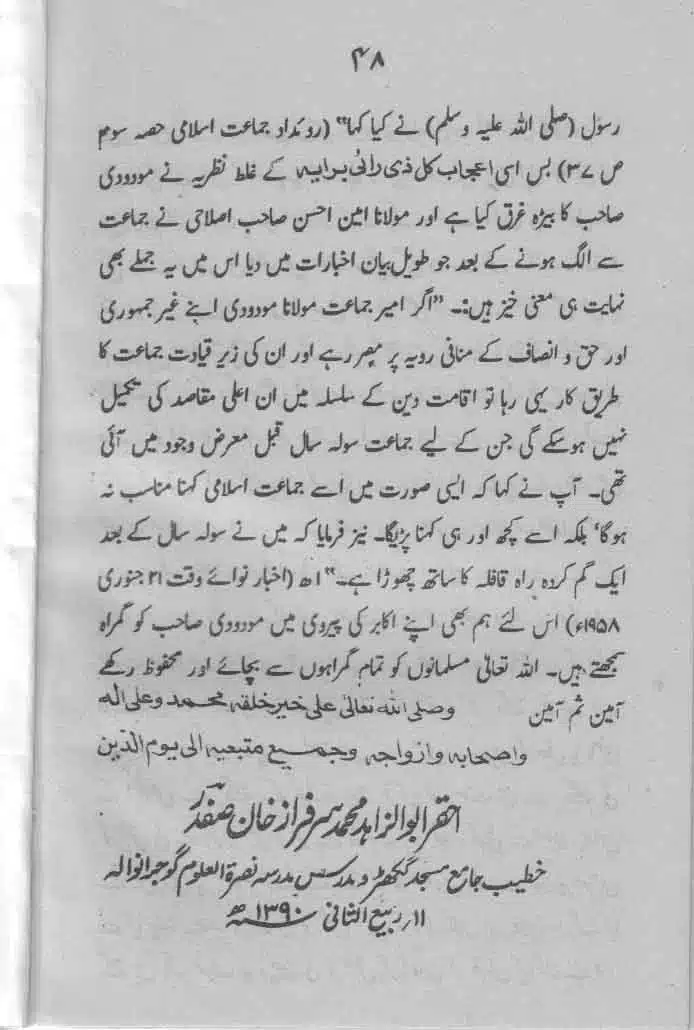 ۴۸
رسول (صلی اللہ علیہ وسلم) نے کیا کہا“ (روئداد جماعت اسلامی حصہ سوم
ص ۳۷) بس اسی اعجاب کل ذی رائی برایہ کے غلط نظریہ نے مودودی
صاحب کا بیڑہ غرق کیا ہے اور مولانا امین احسن صاحب اصلاحی نے جماعت
سے الگ ہونے کے بعد جو طویل بیان اخبارات میں دیا اس میں یہ جملے بھی
نہایت ہی معنی خیز ہیں:۔ ”اگر امیر جماعت مولانا مودودی اپنے غیر جمہوری
اور حق و انصاف کے منافی رویہ پر مصر رہے اور ان کی زیر قیادت جماعت کا
طریق کار یہی رہا تو اقامت دین کے سلسلہ میں ان اعلی مقاصد کی تکمیل
نہیں ہوسکے گی جن کے لیے جماعت سولہ سال قبل معرض وجود میں آئی
تھی۔ آپ نے کہا کہ ایسی صورت میں اسے جماعت اسلامی کہنا مناسب نہ
ہوگا‘ بلکہ اسے کچھ اور ہی کہنا پڑیگا۔ نیز فرمایا کہ میں نے سولہ سال کے بعد
ایک گم کردہ راہ قافلہ کا ساتھ چھوڑا ہے۔“ اھ (اخبار نوائے وقت ۲۱ جنوری
۱۹۵۸ء) اس لئے ہم بھی اپنے اکابر کی پیروی میں مودودی صاحب کو گمراہ
سمجھتے ہیں۔ اللہ تعالیٰ مسلمانوں کو تمام گمراہوں سے بچائے اور محفوظ رکھے
آمین ثم آمین وصلی اللہ تعالیٰ علی خیر خلقہ محمد وعلی الہ
واصحابہ وازواجہ وجمیع متبعیہ الی یوم الدین
احقر ابوالزاہد محمد سرفراز خان صفدر
خطیب جامع مسجد گکھڑ و مدرس مدرسہ نصرۃ العلوم گوجرانوالہ
۱۱ ربیع الثانی ۱۳۹۰ھ